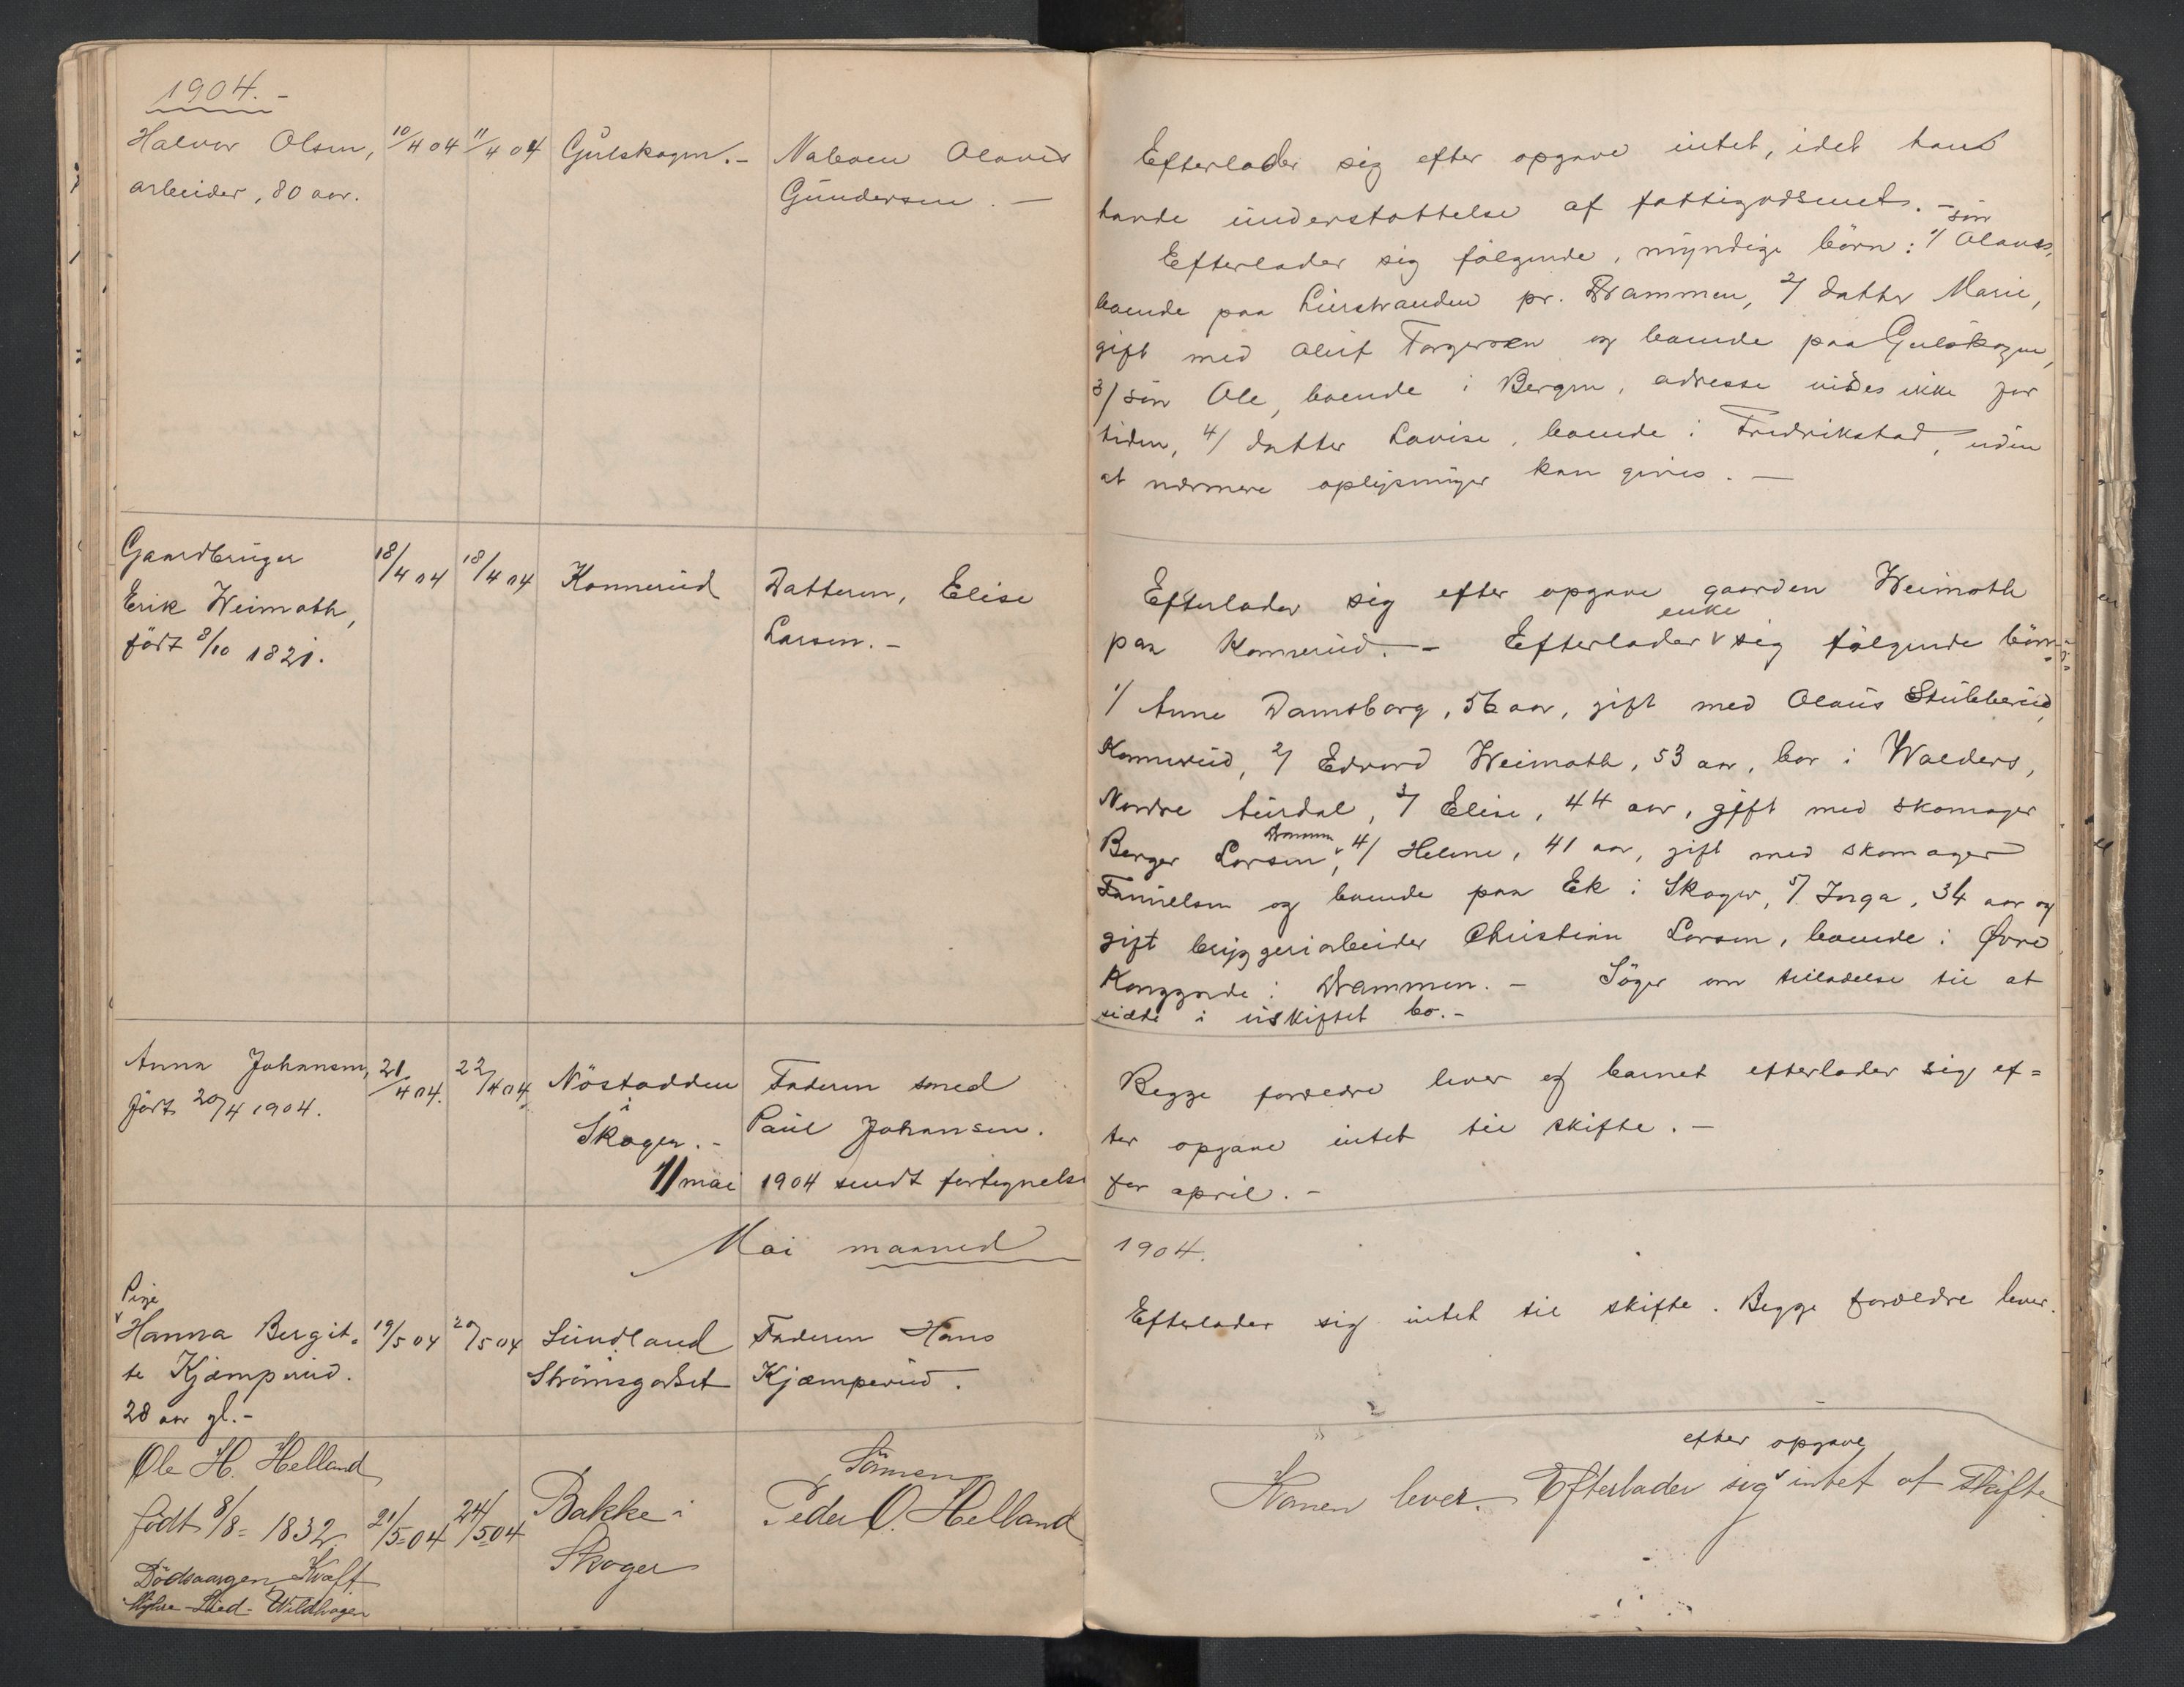 1904.-
Halvor Olsen, 10/4 04 11/4 04 Gulskogen.- Naboen Olavus
arbeider, 80 aar. Gundersen. —
Efterlader sig efter opgave intet, idet hans
havde understøttelse af fattigvæsenet. -
Efterlader sig følgende, myndige børn: 1/ søn Olaus,
boende paa Lierstranden pr. Drammen, 2/ datter Marie,
gift med Oluf Torgersen og boende paa Gulskogen,
3/ søn Ole, boende i Bergen, adresse vides ikke for
tiden, 4/ datter Lovise, boende i Fredrikstad, uden
at nærmere oplysninger kan gives. —
Gaardbruger 18/4 04 18/4 04 Konnerud Datteren, Elise
Erik Weimoth, Larsen. -
født 8/10 1821.
Efterlader sig efter opgave gaarden Weimoth
paa Konnerud. - Efterlader enke sig følgende børn:
1/ Anne Damsborg, 56 aar, gift med Olaus Stubberud,
Konnerud, 2/ Edvard Weimoth, 53 aar, bor i Walders,
Nordre Aurdal, 3/ Elise, 44 aar, gift med skomager
Berger Larsen, Drammen, 4/ Helene, 41 aar, gift med skomager
og boende paa Ek i Skoger, 5/ Inga, 34 aar og
gift bryggeriarbeider Christian Larsen, boende i Øvre
Konggade i Drammen. - Søger om tilladelse til at
sidde i uskiftet bo. -
Anna Johansen, 21/4 04. 22/4 04. Nöstodden Faderen smed
født 20/4 1904. i Skoger. - Paul Johansen.
Begge forældre lever og barnet efterlader sig ef=
ter opgave intet til skifte. -
11/ mai 1904 sendt fortegnelse for april. -
Mai maaned 1904.
Pige
Hanna Bergit= 19/5 04 20/5 04 Sundland Faderen Hans
te Kjæmperud. Strömsgodset Kjæmperud.
28 aar gl. -
Efterlader sig intet til skifte. Begge forældre lever.
Ole H. Helland Sönnen
født 8/8 = 1832. 21/5-04 24/5-04 Bakke i Peder O. Helland
Skoger
Dödsaarsagen Kræft
Wildhagen
efter opgave
Konen lever. Efterlader sig intet at skifte